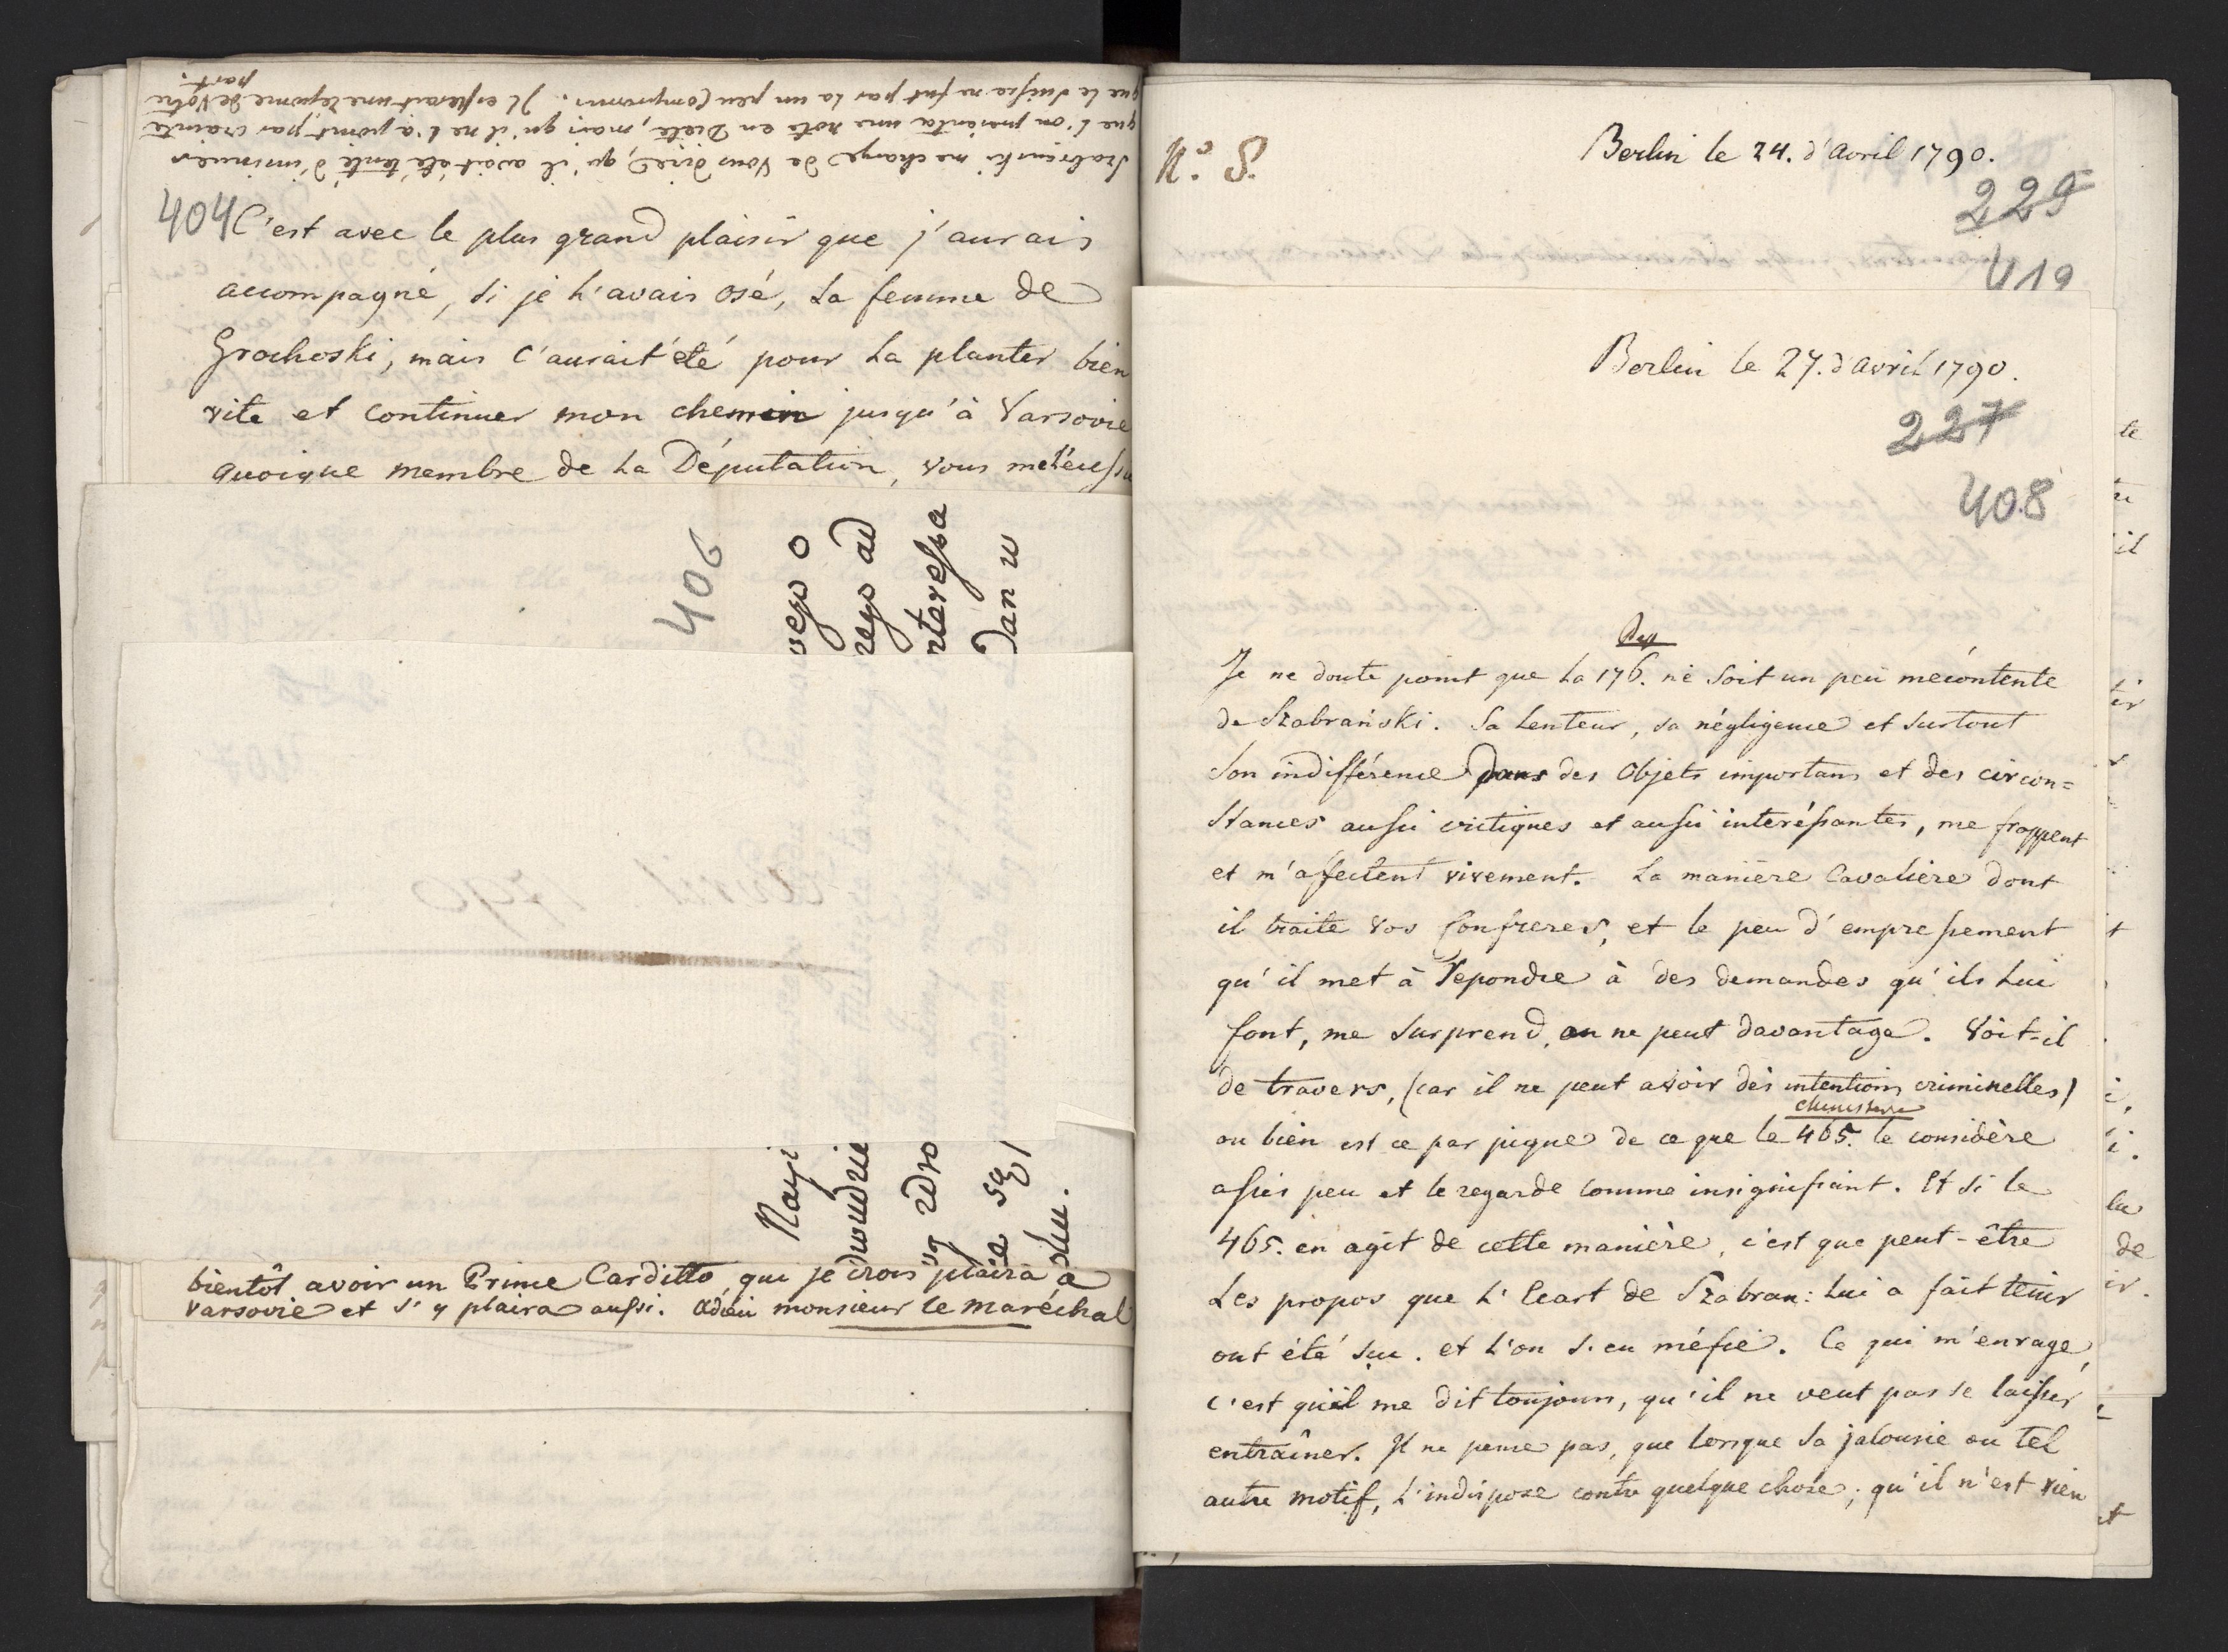 Szabranski me charge de vous dire, qu'il avait été tenté d'insinuer
que l'on présenta une note en Diète, mais qu'il ne l'a point, par crainte
que le Suisse ne fut par la un peu Compromis. Il esperait une réponse de Votre
part.
404
C'est avec le plus grand plaisir que j'aurais
accompagné, si je l'avais osé, la femme de
Grochoski, mais c'aurait été pour la planter bien
vite et continuer mon chemin jusqu'à Varsovie
quoique membre de la Députation, vous
406
bientôt avoir un Prince Carditto, qui je crois plaira à
Varsovie et s'y plaira aussi. Adieu monsieur le maréchal
No. 8.
Berlin le 24. d'avril 1790.
225
419
Berlin le 27. d'avril 1790.
227
408
Je ne doute point que la 176. ne soit un peu mécontente
de Szabrański. Sa lenteur, sa négligence et surtout
son indifférence dans des objets importans et des circon=
stances aussi critiques et aussi interéssantes, me frappent
et m'affectent vivement. La manière Cavalière dont
il traite vos Confreres, et le peu d'empressement
qu'il met à repondre à des demandes qu'ils lui
font, me surprend, on ne peut davantage. Voit-il
de travers, (car il ne peut avoir des intentions criminelles)
ou bien est ce par pique de ce que le 465. le considère
assés peu et le regarde comme insignifiant. Et si le
465. en agit de cette manière, c'est que peut-être
les propos que l'Ecart de Szabran: lui a fait tenir
ont été sçu. et l'on s'en méfie. Ce qui m'enrage,
c'est qu'il me dit toujours, qu'il ne veut pas se laisser
entraîner. Il ne pense pas, que lorsque sa jalousie ou tel
autre motif, l'indispose contre quelque chose, qu'il n'est rien